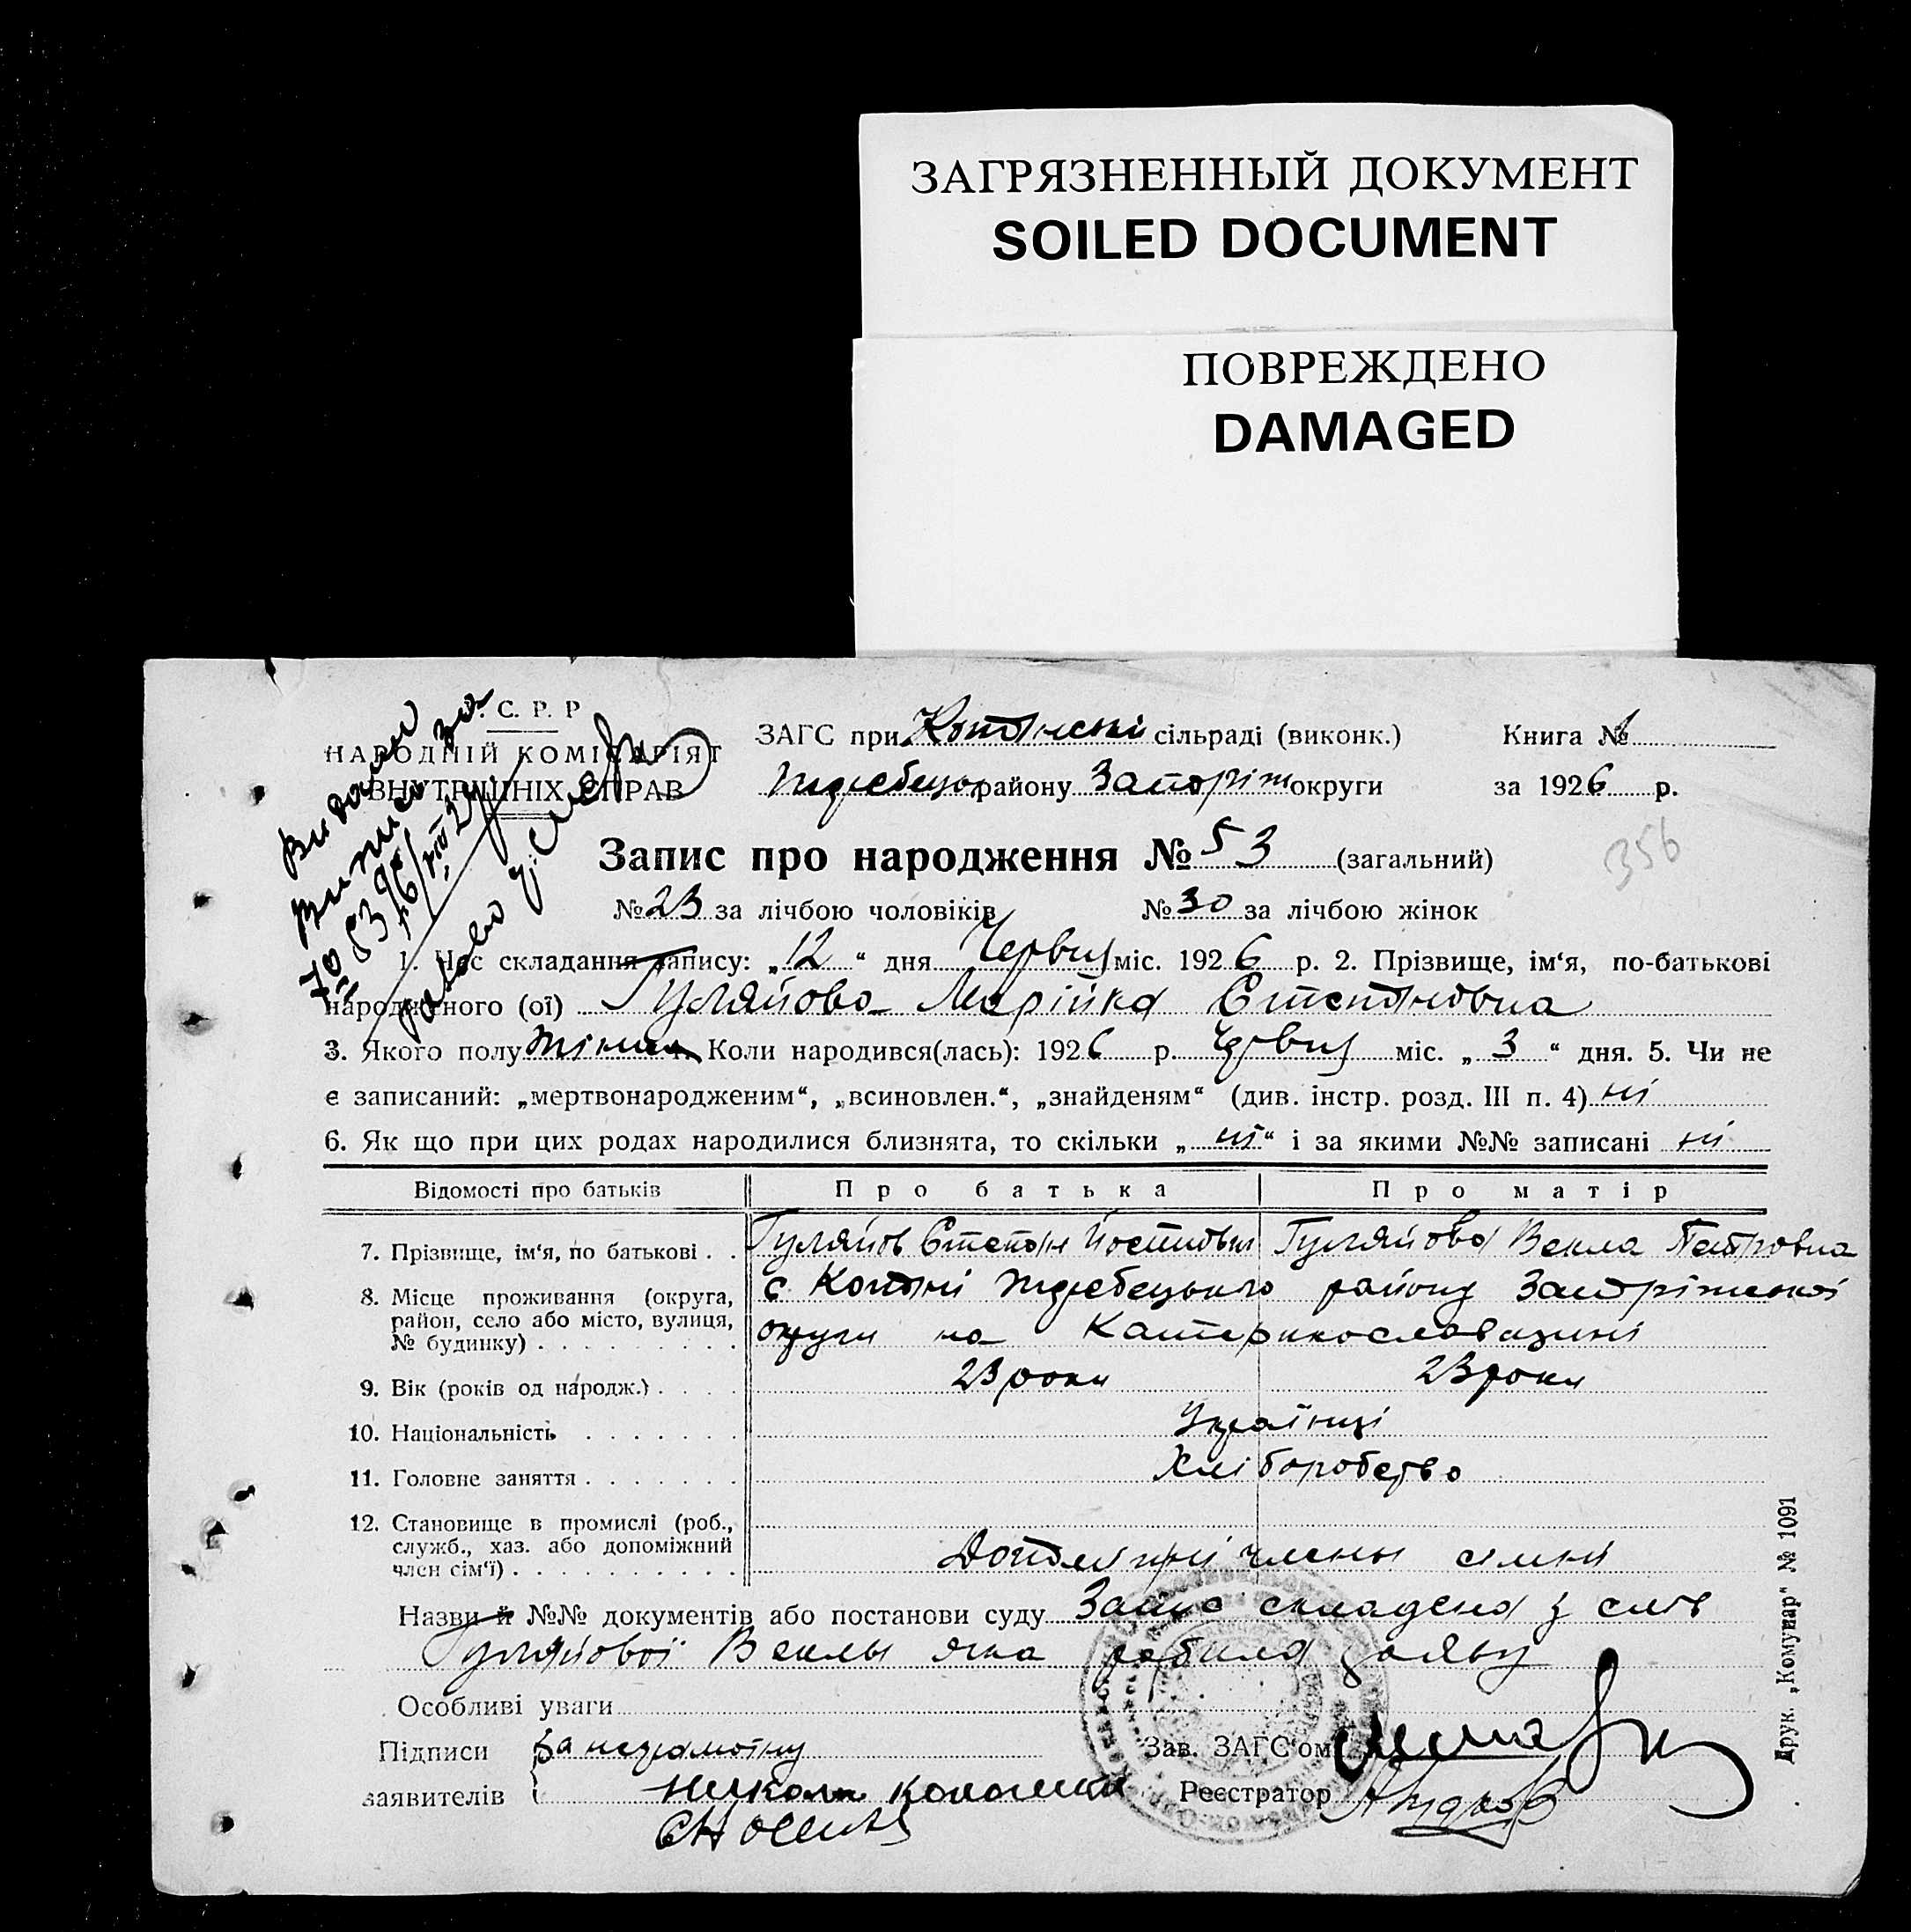 ЗАГРЯЗНЕННЫЙ ДОКУМЕНТ
SOILED DOCUMENT
ПОВРЕЖДЕНО
DAMAGED
С. Р. Р
НАРОДНІЙ КОМІСАРІЯТ
ВНУТРІШНІХ СПРАВ
ЗАГС при сільраді (виконк.)
району Запоріж округи
Книга №
за 1926 р.
Запис про народження № 53 (загальний)
356
№ 23 за лічбою чоловіків № 30 за лічбою жінок
1. Час складання запису: „12“ дня Червня міс. 1926 р. 2. Прізвище, ім‘я, по-батькові
народженого (ої) Гуляйова Марійка Степановна
3. Якого полу жіноч. Коли народився(лась): 1926 р. Червня міс. „3“ дня. 5. Чи не
є записаний: „мертвонародженим“, „всиновлен.“, „знайденям“ (див. інстр. розд. III п. 4) ні
6. Як що при цих родах народилися близнята, то скільки „ні“ і за якими №№ записані ні
Відомості про батьків Про батька Про матір
7. Прізвище, ім‘я, по батькові . . Гуляйов Степан Гуляйова Векла Петровна
8. Місце проживання (округа, район, село або місто, вулиця, № будинку) . . . . . . . . .
с. Копані Жеребецького району Запоріжської
округи на Катеринославщині
9. Вік (років од народж.) . . . . 23 роки 23 роки
10. Національність . . . . . . . Українці
11. Головне заняття . . . . . . . Хліборобство
12. Становище в промислі (роб., служб., хаз. або допоміжний член сім‘ї) . . . . . . . . . .
члены сімьи
Назви й №№ документів або постанови суду Запис складена з слів
Гуляйової Веклы яка робила заяву
Особливі уваги
Підписи за неграмотну
заявителів
Зав. ЗАГС‘ом
Реєстратор
Друк. „Комунар“ № 1091